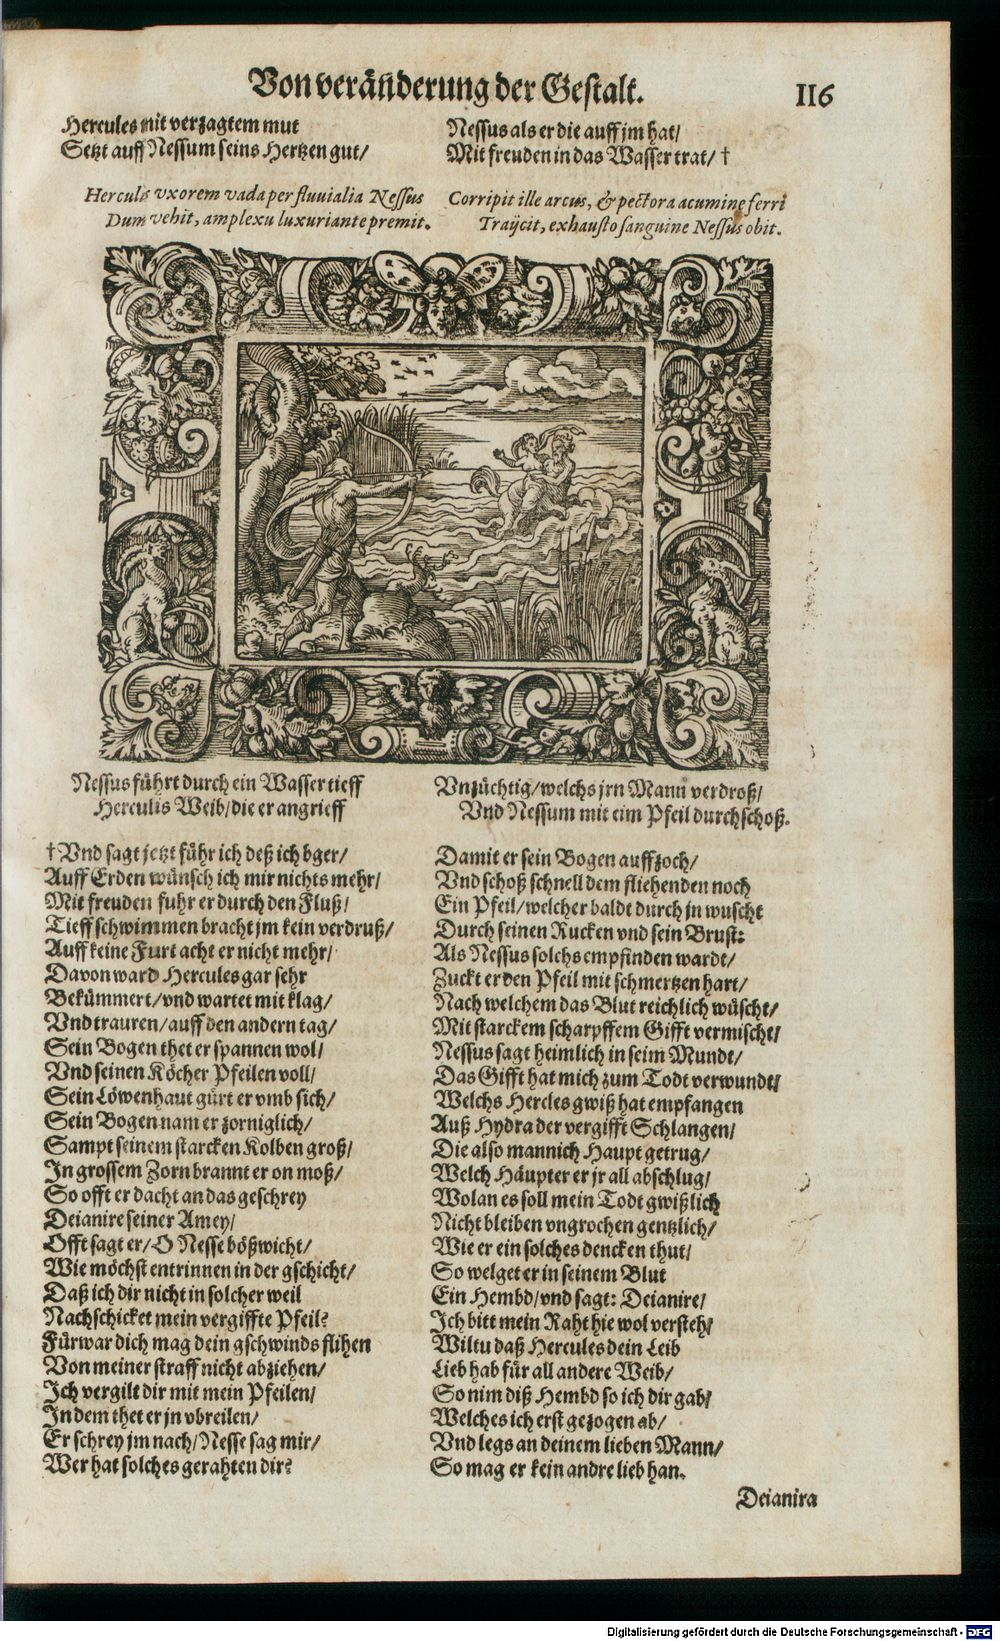 Von veränderung der Gestalt.
116
Hercules mit verzagtem mut
Setzt auff Nessum seins Hertzen gut/
Nessus als er die auff jm hat/
Mit freuden in das Wasser trat/ †
Herculis vxorem vada per fluuialia Nessus
Dum vehit, amplexu luxuriante premit.
Corripit ille arcus, & pectora acumine ferri
Traijcit, exhausto sanguine Nessus obit.
Nessus führt durch ein Wasser tieff
Herculis Weib/die er angrieff
Vnzüchtig/welchs jrn Mann verdroß/
Vnd Nessum mit eim Pfeil durchschoß.
† Vnd sagt jetzt führ ich deß ich bger/
Auff Erden wünsch ich mir nichts mehr/
Mit freuden fuhr er durch den Fluß/
Tieff schwimmen bracht jm kein verdruß/
Auff keine Furt acht er nicht mehr/
Davon ward Hercules gar sehr
Bekümmert/vnd wartet mit klag/
Vnd trauren/auff den andern tag/
Sein Bogen thet er spannen wol/
Vnd seinen Köcher Pfeilen voll/
Sein Löwenhaut gürt er vmb sich/
Sein Bogen nam er zorniglich/
Sampt seinem starcken Kolben groß/
In grossem Zorn brannt er on moß/
So offt er dacht an das geschrey
Deianire seiner Amey/
Offt sagt er/O Nesse bößwicht/
Wie möchst entrinnen in der gschicht/
Daß ich dir nicht in solcher weil
Nachschicket mein vergiffte Pfeil?
Fürwar dich mag dein gschwinds flihen
Von meiner straff nicht abziehen/
Ich vergilt dir mit mein Pfeilen/
In dem thet er jn vbreilen/
Er schrey jm nach/Nesse sag mir/
Wer hat solches gerahten dir?
Damit er sein Bogen auff zoch/
Vnd schoß schnell dem fliehenden noch
Ein Pfeil/welcher baldt durch jn wuscht
Durch seinen Rucken vnd sein Brust:
Als Nessus solchs empfinden wardt/
Zuckt er den Pfeil mit schmertzen hart/
Nach welchem das Blut reichlich wüscht/
Mit starckem scharpffem Gifft vermischt/
Nessus sagt heimlich in seim Mundt/
Das Gifft hat mich zum Todt verwundt/
Welchs Hercles gwiß hat empfangen
Auß Hydra der vergifft Schlangen/
Die also mannich Haupt getrug/
Welch Häupter er jr all abschlug/
Wolan es soll mein Todt gwißlich
Nicht bleiben vngrochen gentzlich/
Wie er ein solches dencken thut/
So welget er in seinem Blut
Ein Hembd/vnd sagt: Deianire/
Ich bitt mein Raht hie wol versteh/
Wiltu daß Hercules dein Leib
Lieb hab für all andere Weib/
So nim diß Hembd so ich dir gab/
Welches ich erst gezogen ab/
Vnd legs an deinem lieben Mann/
So mag er kein andre lieb han.
Deianira
Digitalisierung gefördert durch die Deutsche Forschungsgemeinschaft - DFG